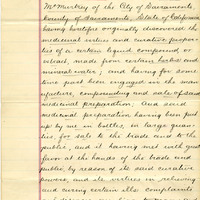 McMurtrey of the City of Sacramento,
County of Sacramento, State of California
having heretofore originally discovered the
medicinal virtues and curative proper-
ties of a certain liquid compound or
extract, made from certain herbs and
mineral water; and having for some
time past been engaged in the man-
ufacture, compounding and sale of said
medicinal preparation; And said
medicinal preparation having been put
up by me in bottles, in large quanti-
ties, for sale to the trade and to the
public, and it having met with great
favor at the hands of the trade and
public, by reason of its said curative
powers, and its virtues in relieving
and curing certain ills, complaints